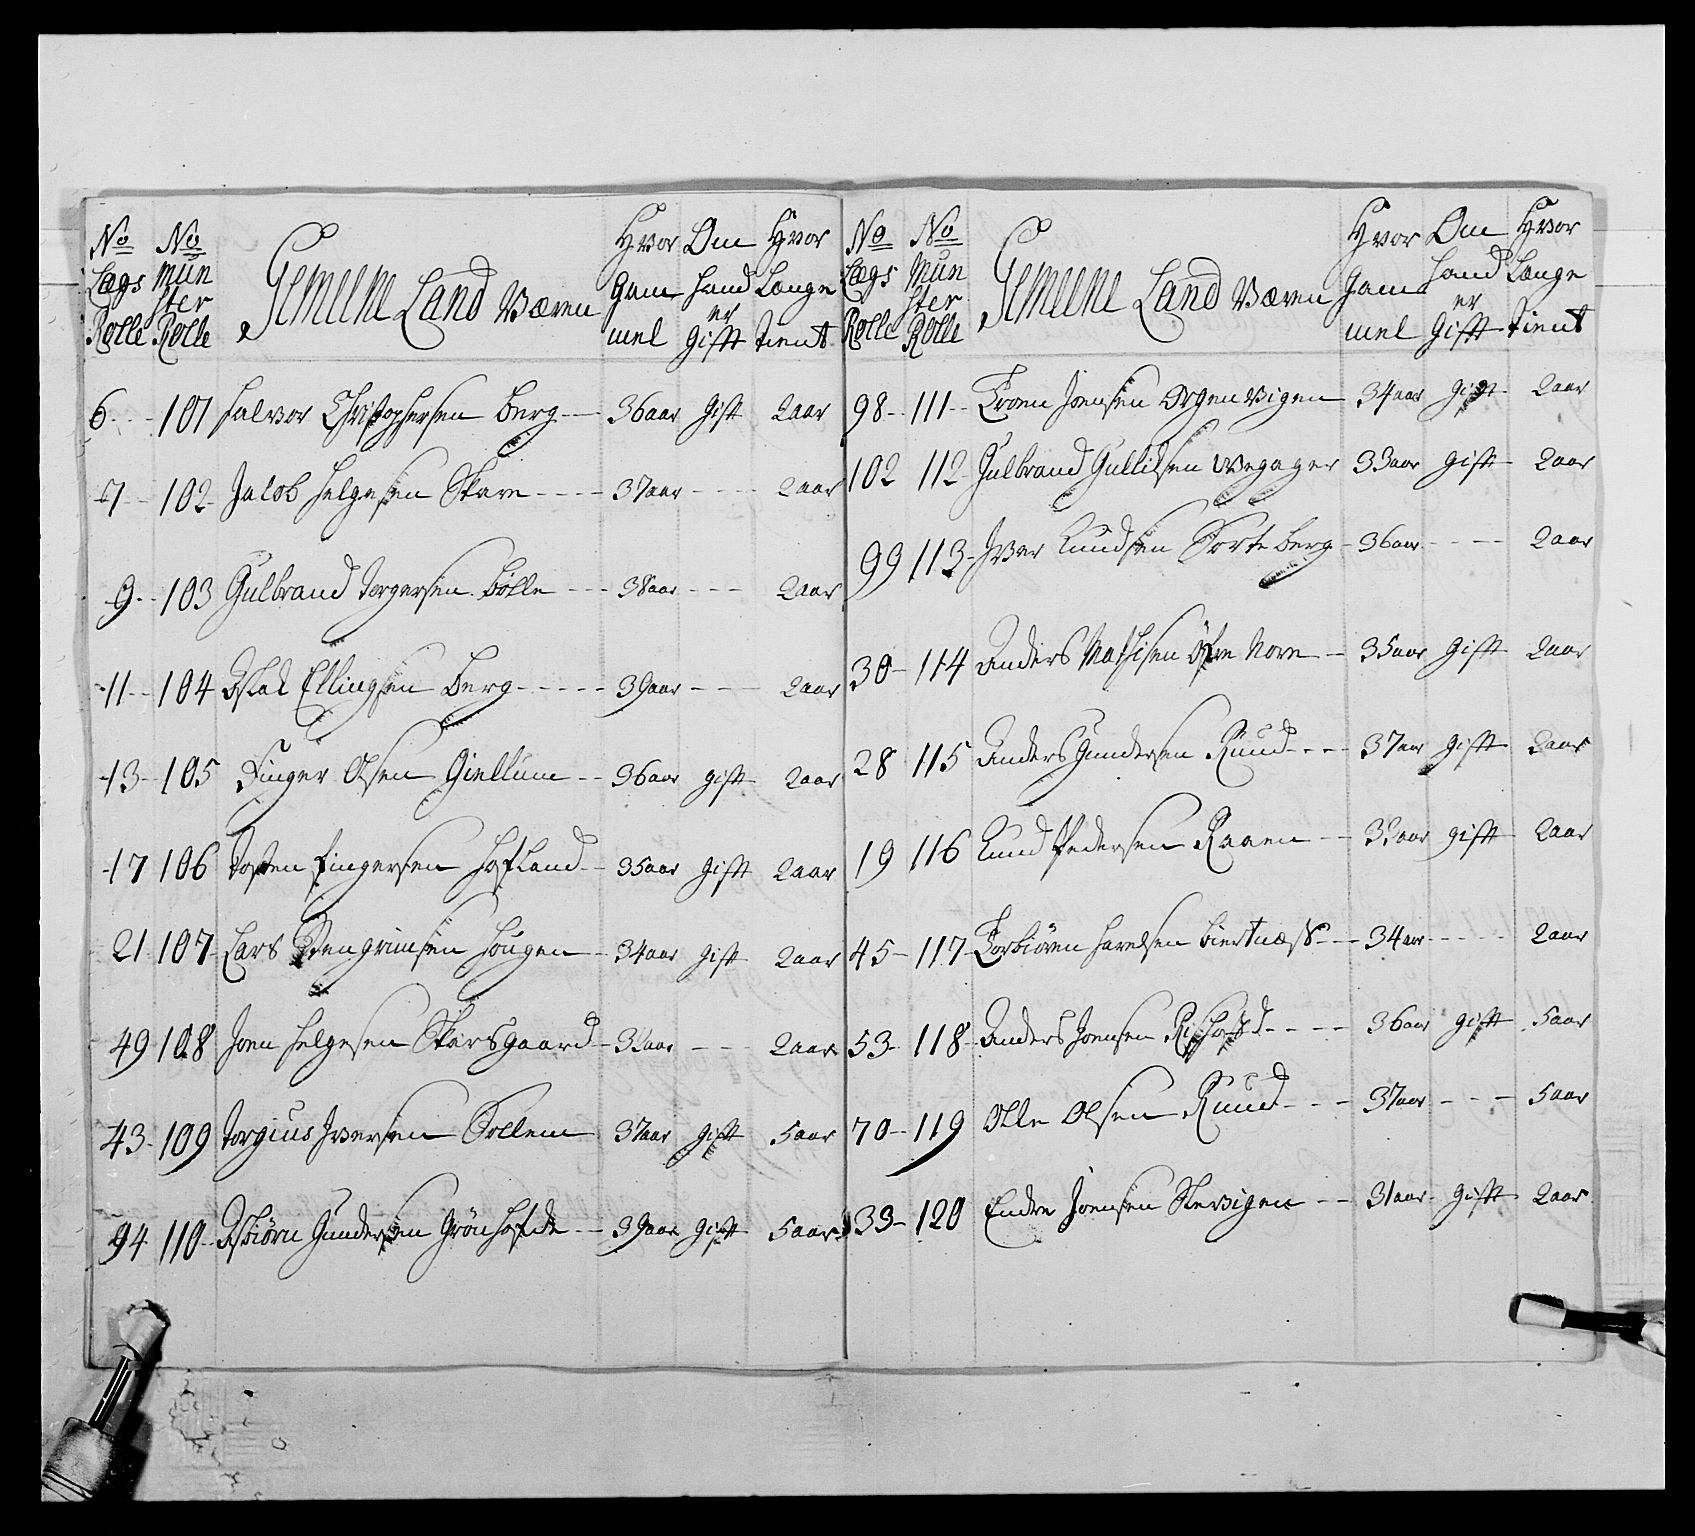 No Lægs Rolle No Mün ster Rolle Gemeene Land Væren Hvor Gam mel Om hand er Gift Hvor Længe tient
6 - - 107 Halvor Christophersen Berg - - 36 aar Gift 2 aar
7 - - 102 Jacob Helgesen Skare - - - - 37 aar - - - - 2 aar
9 - - 103 Gulbrand Torgersen Bölle - - - 38 aar - - - 2 aar
11 - - 104 Aslak Ellingsen Berg - - - - - 39 aar - - - 2 aar
13 - 105 Finger Olsen Giellum - - 36 aar gift 2 aar
17 106 Tosten Fingersen Hofland - - 35 aar Gift 2 aar
21 107 Lars Stengrimsen Hougen - - 34 aar gift 2 aar
49 108 Joen Helgesen Skarsgaard - aar - - - 2 aar
43 - 109 Torgius Iversen Sollem 37 aar gift 5 aar
94 110 - Asbiörn Gundersen Grönhofde - - 39 aar Gift 5 aar
No Lægs Rolle No Mün ster Rolle Gemeene Land Væren Hvor Gam mel Om hand er Gift Hvor Længe tient
98 - - 111 - - Troen Joensen Orgenvigen 34 aar Gift 2 aar
102 112 - Gulbrand Gullichsen Wegager 33 aar gift 2 aar
99 113 - Iver Knudsen Sorteberg - 36 aar - - - - 2 aar
30 - 114 Anders Mathisen öfre Nore - - 35 aar Gift 2 aar
28 115 Anders Gundersen Ruud - - - 37 aar Gift 2 aar
19 116 Knud Pedersen Raaen - - aar gift 2 aar
45 - 117 - Torbiören Harelsen Biertnæss - - - 34 aar - - - - - 2 aar
53 - 118 - Anders Joensen - - - - 36 aar gift 5 aar
70 - - 119 Olle Olsen Ruud - - - 37 aar - - - - 5 aar
33 - 120 Endre Joensen Skervigen - - 31 aar - Gift 2 aar